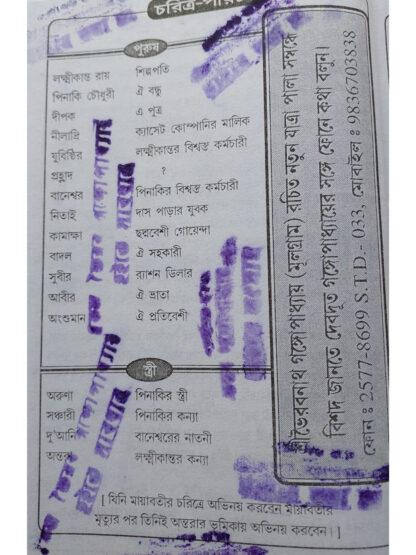 চরিত্র-পরিচ
পুরুষ
লক্ষ্মীকান্ত রায় শিল্পপতি
পিনাকি চৌধুরী ঐ বন্ধু
দীপক এ পুত্র
নীলাদ্রি ক্যাসেট কোম্পানির মালিক
যুবিষ্ঠির লক্ষ্মীকান্তর বিশ্বস্ত কর্মচারী
প্রহ্লাদ ?
বানেশ্বর পিনাকির বিশ্বস্ত কর্মচারী
নিতাই দাস পাড়ার যুবক
কামাক্ষা ছদ্মবেশী গোয়েন্দা
বাদল ঐ সহকারী
সুবীর র‍্যাশন ডিলার
আবীর ঐ ভ্রাতা
অংশুমান ঐ প্রতিবেশী
স্ত্রী
অরুণা পিনাকির স্ত্রী
সঞ্চারী পিনাকির কন্যা
দু'আনি বানেশ্বরের নাতনী
অন্তরা লক্ষ্মীকান্তর কন্যা
[ যিনি মায়াবতীর চরিত্রে অভিনয় করবেন মায়াবতীর
মৃত্যুর পর তিনিই অন্তরার ভূমিকায় অভিনয় করবেন। ]
ভৈরবনাথ গঙ্গোপাধ্যায় (মূলগ্রাম) রচিত নতুন যাত্রা পালা সম্বন্ধে
বিশদ জানতে দেবদূত গঙ্গোপাধ্যায়ের সঙ্গে ফোনে কথা বলুন।
ফোন : 2577-8699 S.T.D.- 033, মোবাইল : 9836703838